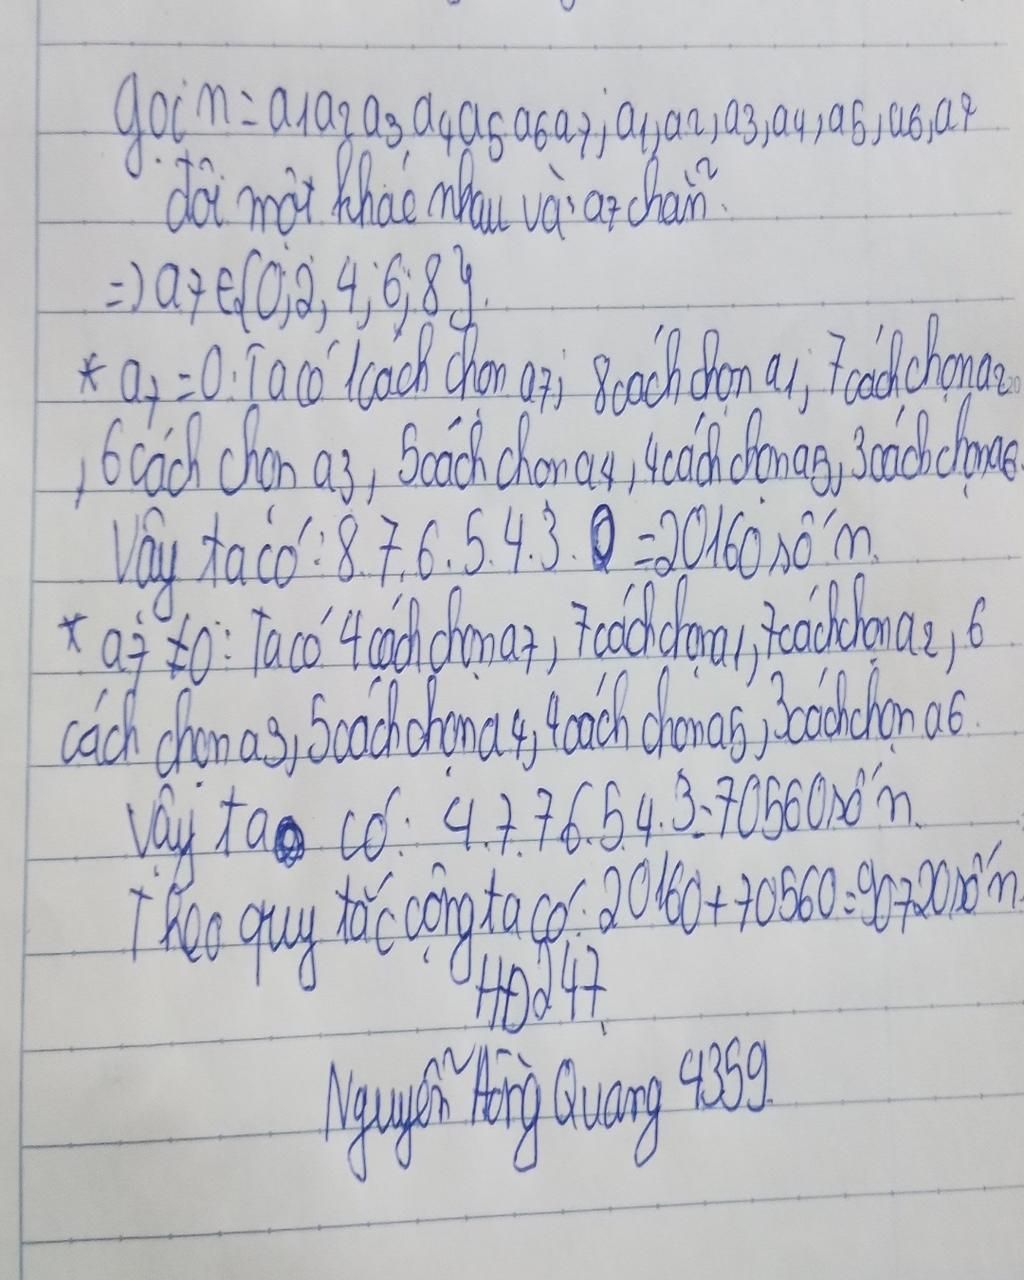 gọi n = a1a2a3a4a5a6a7; a1, a2, a3, a4, a5, a6, a7
đôi một khác nhau và a7 chẵn.
=) a7 ∈ {0; 2; 4; 6; 8}.
* a7 = 0: Ta có 1 cách chọn a7; 8 cách chọn a1; 7 cách chọn a2
, 6 cách chọn a3, 5 cách chọn a4, 4 cách chọn a5, 3 cách chọn a6.
Vậy ta có: 8.7.6.5.4.3. = 20160 số n.
* a7 ≠ 0: Ta có 4 cách chọn a7, 7 cách chọn a1, 7 cách chọn a2, 6
cách chọn a3, 5 cách chọn a4, 4 cách chọn a5, 3 cách chọn a6.
Vậy ta có: 4.7.7.6.5.4.3 = 70560 số n.
Theo quy tắc cộng ta có: 20160 + 70560 = 90720 số n.
HĐ247
Nguyễn Hồng Quang 4359.